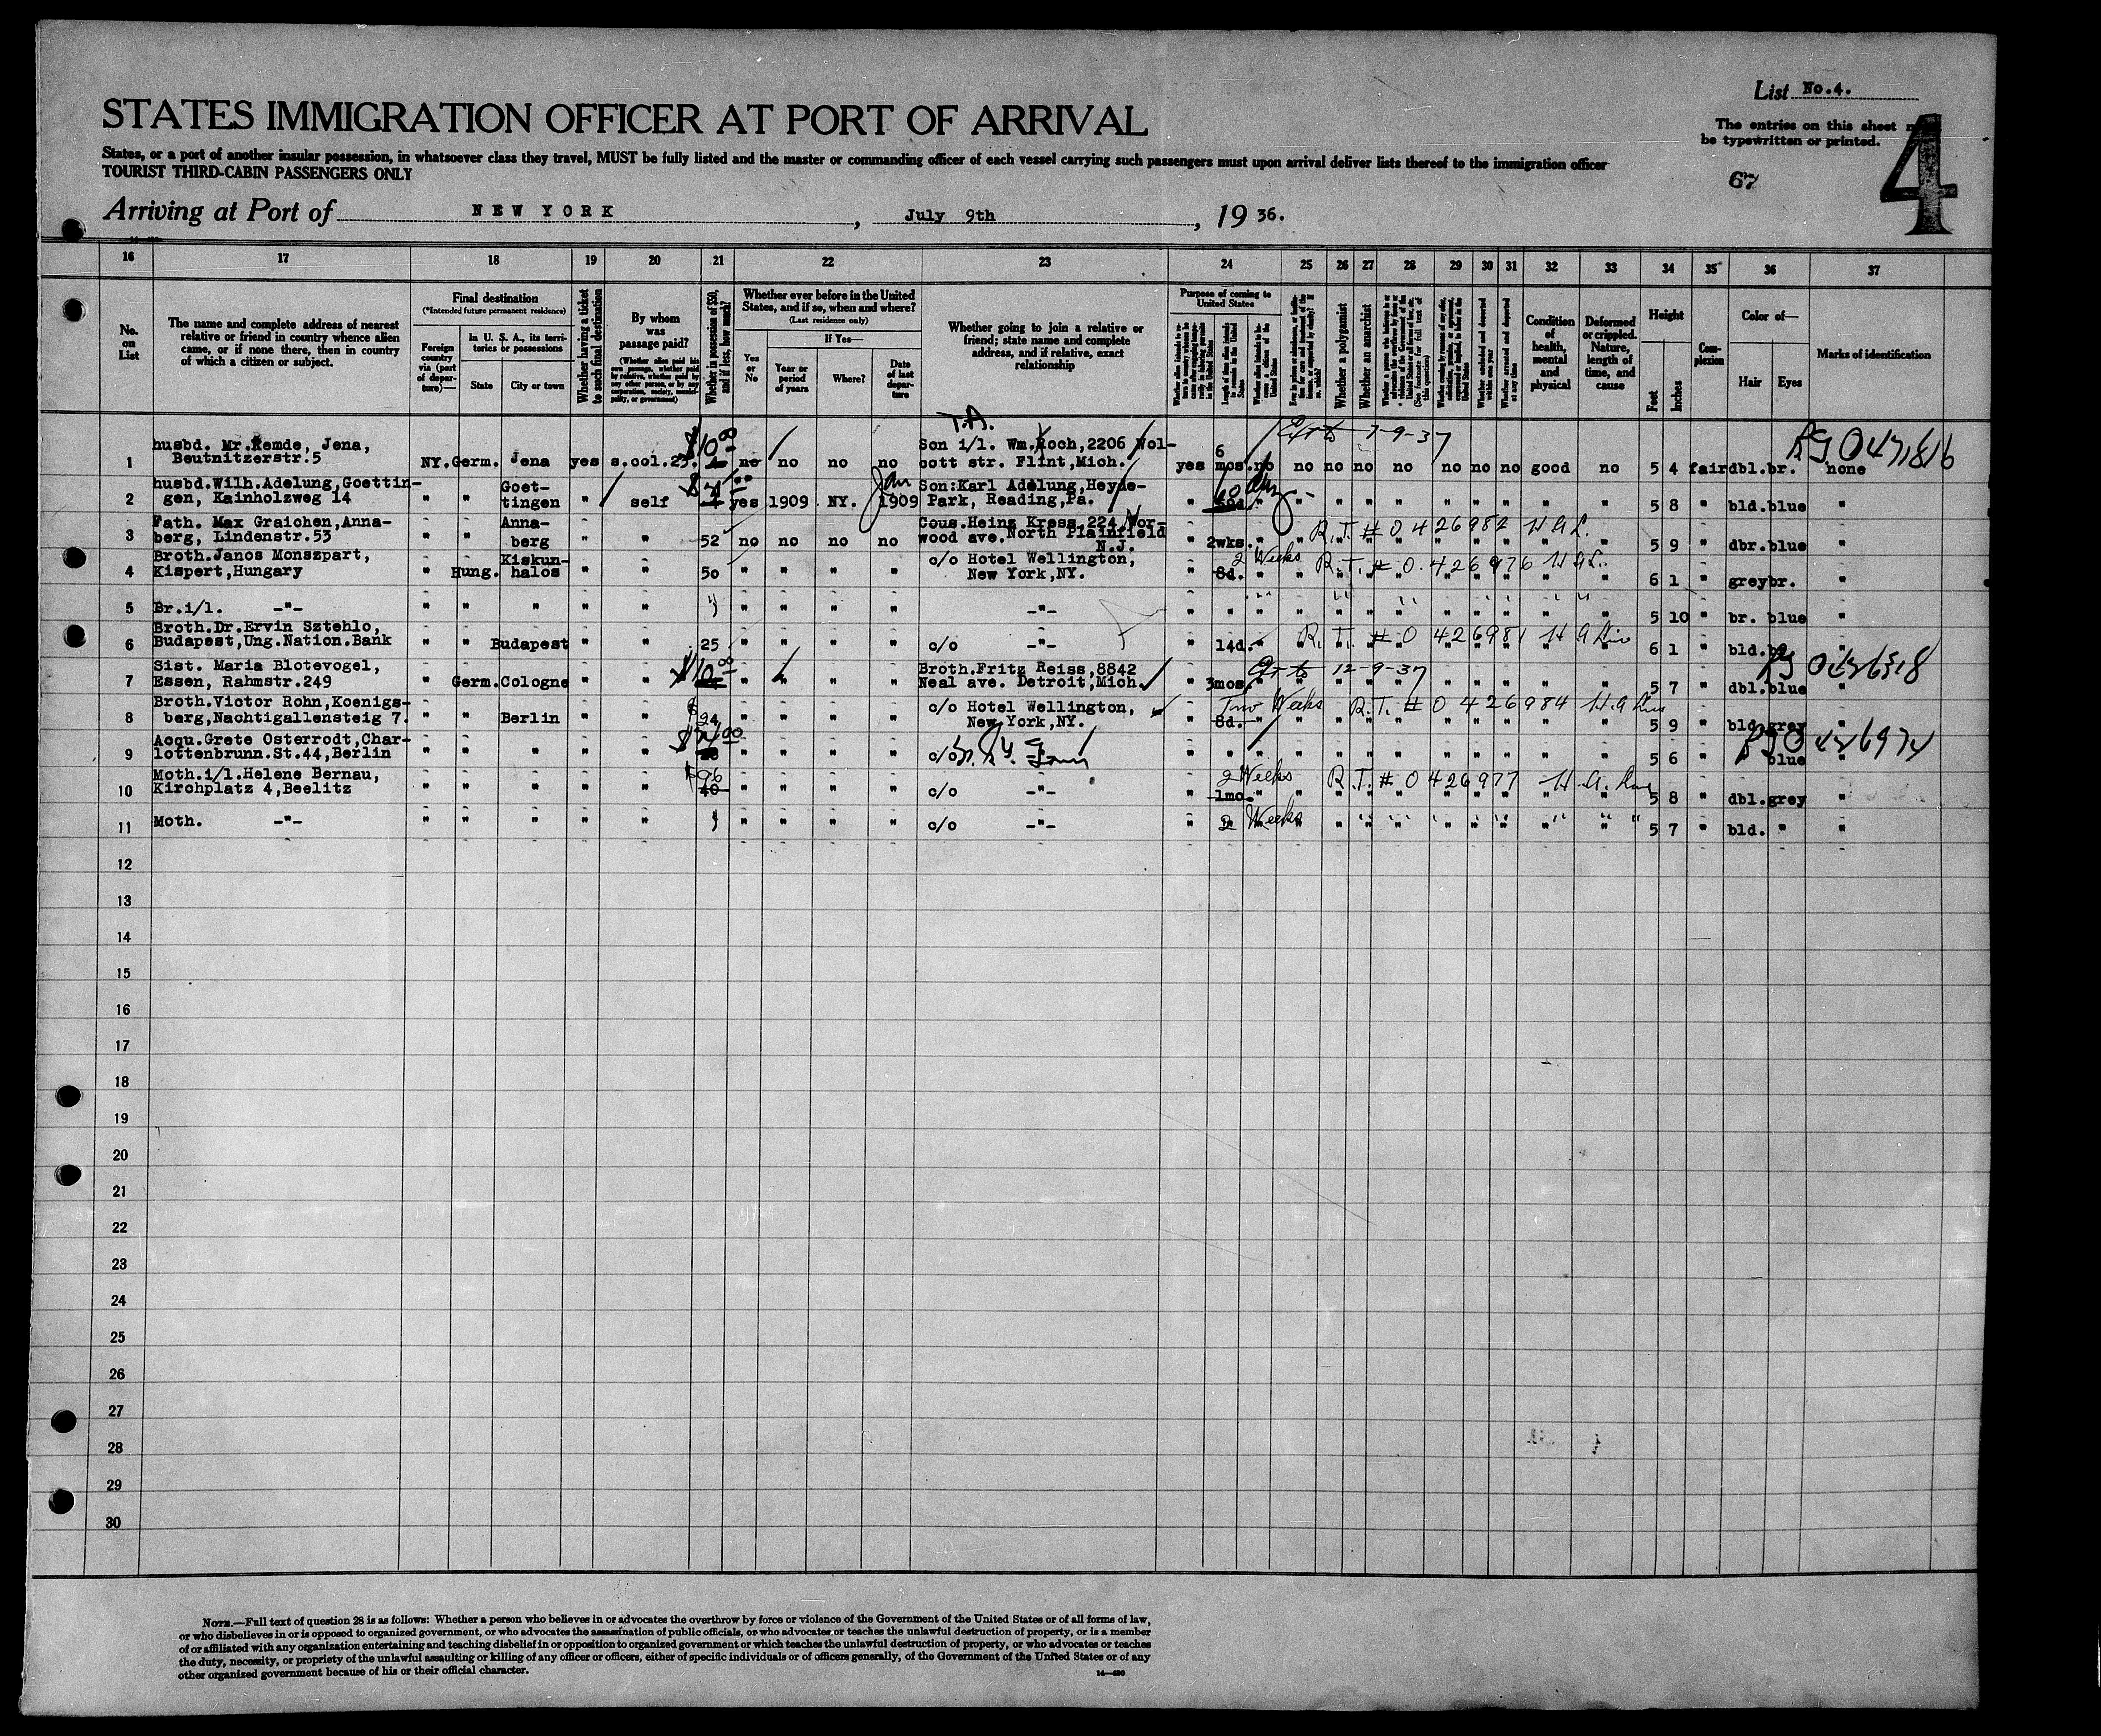 List No.4.
STATES IMMIGRATION OFFICER AT PORT OF ARRIVAL
The entries on this sheet
be typewritten or printed.
4
States, or a port of another insular possession, in whatsoever class they travel, MUST be fully listed and the master or commanding officer of each vessel carrying such passengers must upon arrival deliver lists thereof to the immigration officer
TOURIST THIRD-CABIN PASSENGERS ONLY
67
Arriving at Port of NEW YORK, July 9th, 1936.
16 17 18 19 20 21 22 23 24 25 26 27 28 29 30 31 32 33 34 35 36 37
No. on List
The name and complete address of nearest relative or friend in country whence alien came, or if none there, then in country of which a citizen or subject.
Final destination
(*Intended future permanent residence)
Foreign country via (port of departure)—
In U. S. A., its territories or possessions
State
City or town
Whether having a ticket to such final destination
By whom was passage paid?
(Whether alien paid his own passage, whether paid by relative, whether paid by any other person, or by any corporation, society, municipality, or government)
Whether in possession of $50, and if less, how much?
Whether ever before in the United States, and if so, when and where?
(Last residence only)
Yes or No
If Yes—
Year or period of years
Where?
Date of last departure
Whether going to join a relative or friend; state name and complete address, and if relative, exact relationship
Purpose of coming to United States
Length of time alien intends to remain in the United States
Whether a polygamist
Whether an anarchist
(See footnote for full text of this question)
Whether arrested and deported within one year
Whether arrested and deported at any time
Condition of health, mental and physical
Deformed or crippled. Nature, length of time, and cause
Height
Feet
Inches
Complexion
Color of—
Hair
Eyes
Marks of identification
T.A.
1 husbd. Mr.Remde, Jena, Beutnitzerstr.5 NY. Germ. Jena yes s.col.25. $10.00 no no no no Son i/l. Wm.Koch,2206 Wolcott str. Flint,Mich. yes 6 mos. no no no no no no no no good no 5 4 fair dbl. br. none
7-9-37
2 husbd.Wilh.Adelung,Goettingen, Kainholzweg 14 " " Goettingen " self yes 1909 NY. Jan 1909 Son:Karl Adelung, Heyde-Park, Reading,Pa. " 60 " " " " " " " " " " 5 8 " bld. blue "
3 Fath. Max Graichen,Annaberg, Lindenstr.53 " " Annaberg " " 52 no no no no Cous.Heinz Kress,224 Norwood ave.North Plainfield N.J. " 2wks. " " R.T. # 0426982 H A L. 5 9 " dbr. blue "
4 Broth.Janos Monszpart, Kispert,Hungary " Hung. Kiskunhalos " " 50 " " " " c/o Hotel Wellington, New York,NY. " 8d. 2 Weeks R.T. # 0.426976 H A L. 6 1 " grey br. "
5 Br.i/l. -"- " " " " " " " " " -"- " " " " 5 10 " br. blue "
6 Broth.Dr.Ervin Sztehlo, Budapest,Ung.Nation.Bank " " Budapest " " 25 " " " " c/o -"- " 14d. " R.T. # 0426981 H A Line 6 1 " bld. "
7 Sist. Maria Blotevogel, Essen, Rahmstr.249 " Germ. Cologne " " $10.00 " " " " Broth.Fritz Reiss,8842 Neal ave. Detroit,Mich. " 3mos. " 12-9-37 5 7 " dbl. blue "
8 Broth.Victor Rohn,Koenigsberg,Nachtigallensteig 7. " " Berlin " " $24 " " " " c/o Hotel Wellington, New York,NY. " 8d. Two Weeks R.T. # 0426984 H.A Line 5 9 " bld. grey "
9 Acqu.Grete Osterrodt,Charlottenbrunn.St.44,Berlin " " " " " " " " " c/o " " " 5 6 " " blue "
10 Moth.i/l.Helene Bernau, Kirchplatz 4,Beelitz " " " " " 96 40 " " " " c/o -"- " 1mo. 2 Weeks R.T. # 0426977 H.A. Line 5 8 " dbl. grey "
11 Moth. -"- " " " " " " " " " c/o -"- " 2 Weeks " " " " 5 7 " bld. " "
12
13
14
15
16
17
18
19
20
21
22
23
24
25
26
27
28
29
30
NOTE.—Full text of question 28 is as follows: Whether a person who believes in or advocates the overthrow by force or violence of the Government of the United States or of all forms of law,
or who disbelieves in or is opposed to organized government, or who advocates the assassination of public officials, or who advocates or teaches the unlawful destruction of property, or is a member
of or affiliated with any organization entertaining and teaching disbelief in or opposition to organized government or which teaches the unlawful destruction of property, or who advocates or teaches
the duty, necessity, or propriety of the unlawful assaulting or killing of any officer or officers, either of specific individuals or of officers generally, of the Government of the United States or of any
other organized government because of his or their official character.